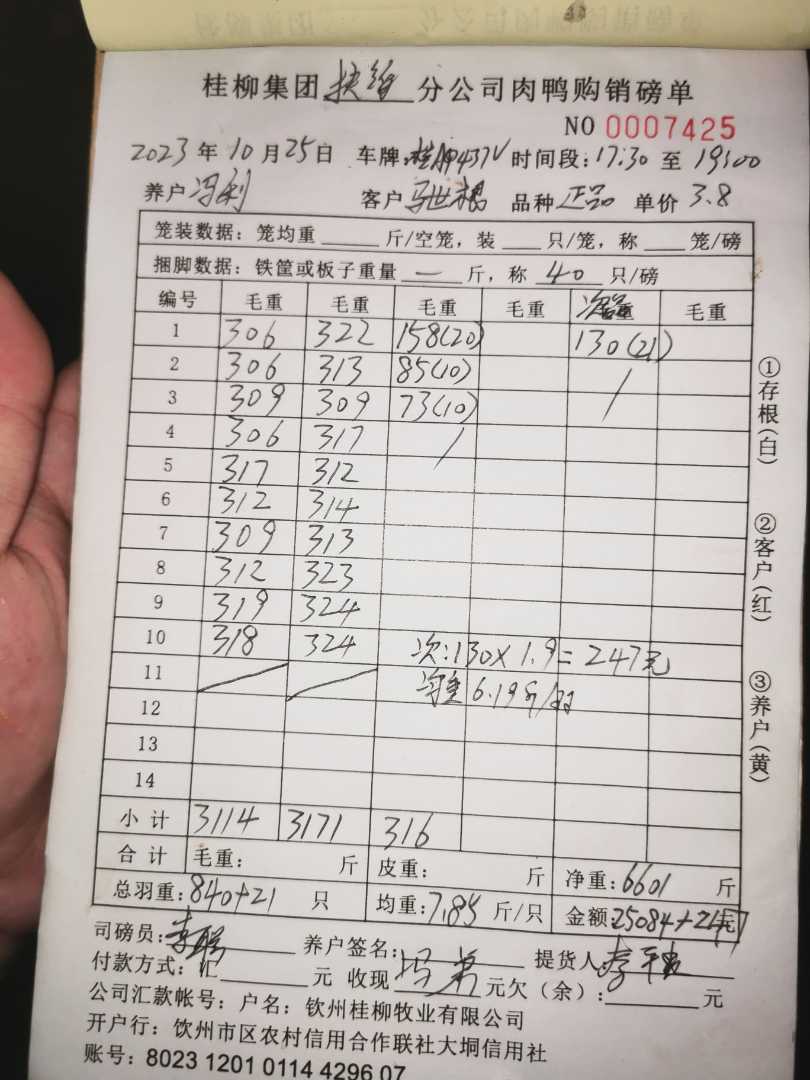 桂柳集团 分公司肉鸭购销磅单
NO 0007425
2023年10月25日 车牌: 时间段:17:30至19:00
养户 冯利 客户 马世根 品种 正品 单价 3.8
笼装数据:笼均重 斤/空笼,装 只/笼,称 笼/磅
捆脚数据:铁筐或板子重量 一 斤,称 40 只/磅
编号 毛重 毛重 毛重 毛重 毛重
1 306 322 158(20) 130(21)
2 306 313 85(10) /
3 309 309 73(10)
4 306 317 /
5 317 312
6 312 314
7 309 313
8 312 323
9 319 324
10 318 324 次:130×1.9=247元
11 6.19
12
13
14
小计 3114 3171 316
合计 毛重: 斤 皮重: 斤 净重:6601 斤
总羽重:840+21 只 均重:7.85 斤/只 金额:25084+247元
司磅员: 养户签名: 提货人:
付款方式:汇 元 收现 元欠(余): 元
公司汇款帐号:户名:钦州桂柳牧业有限公司
开户行:饮州市区农村信用合作联社大垌信用社
账号:8023 1201 0114 4296 07
①存根(白)
②客户(红)
③养户(黄)